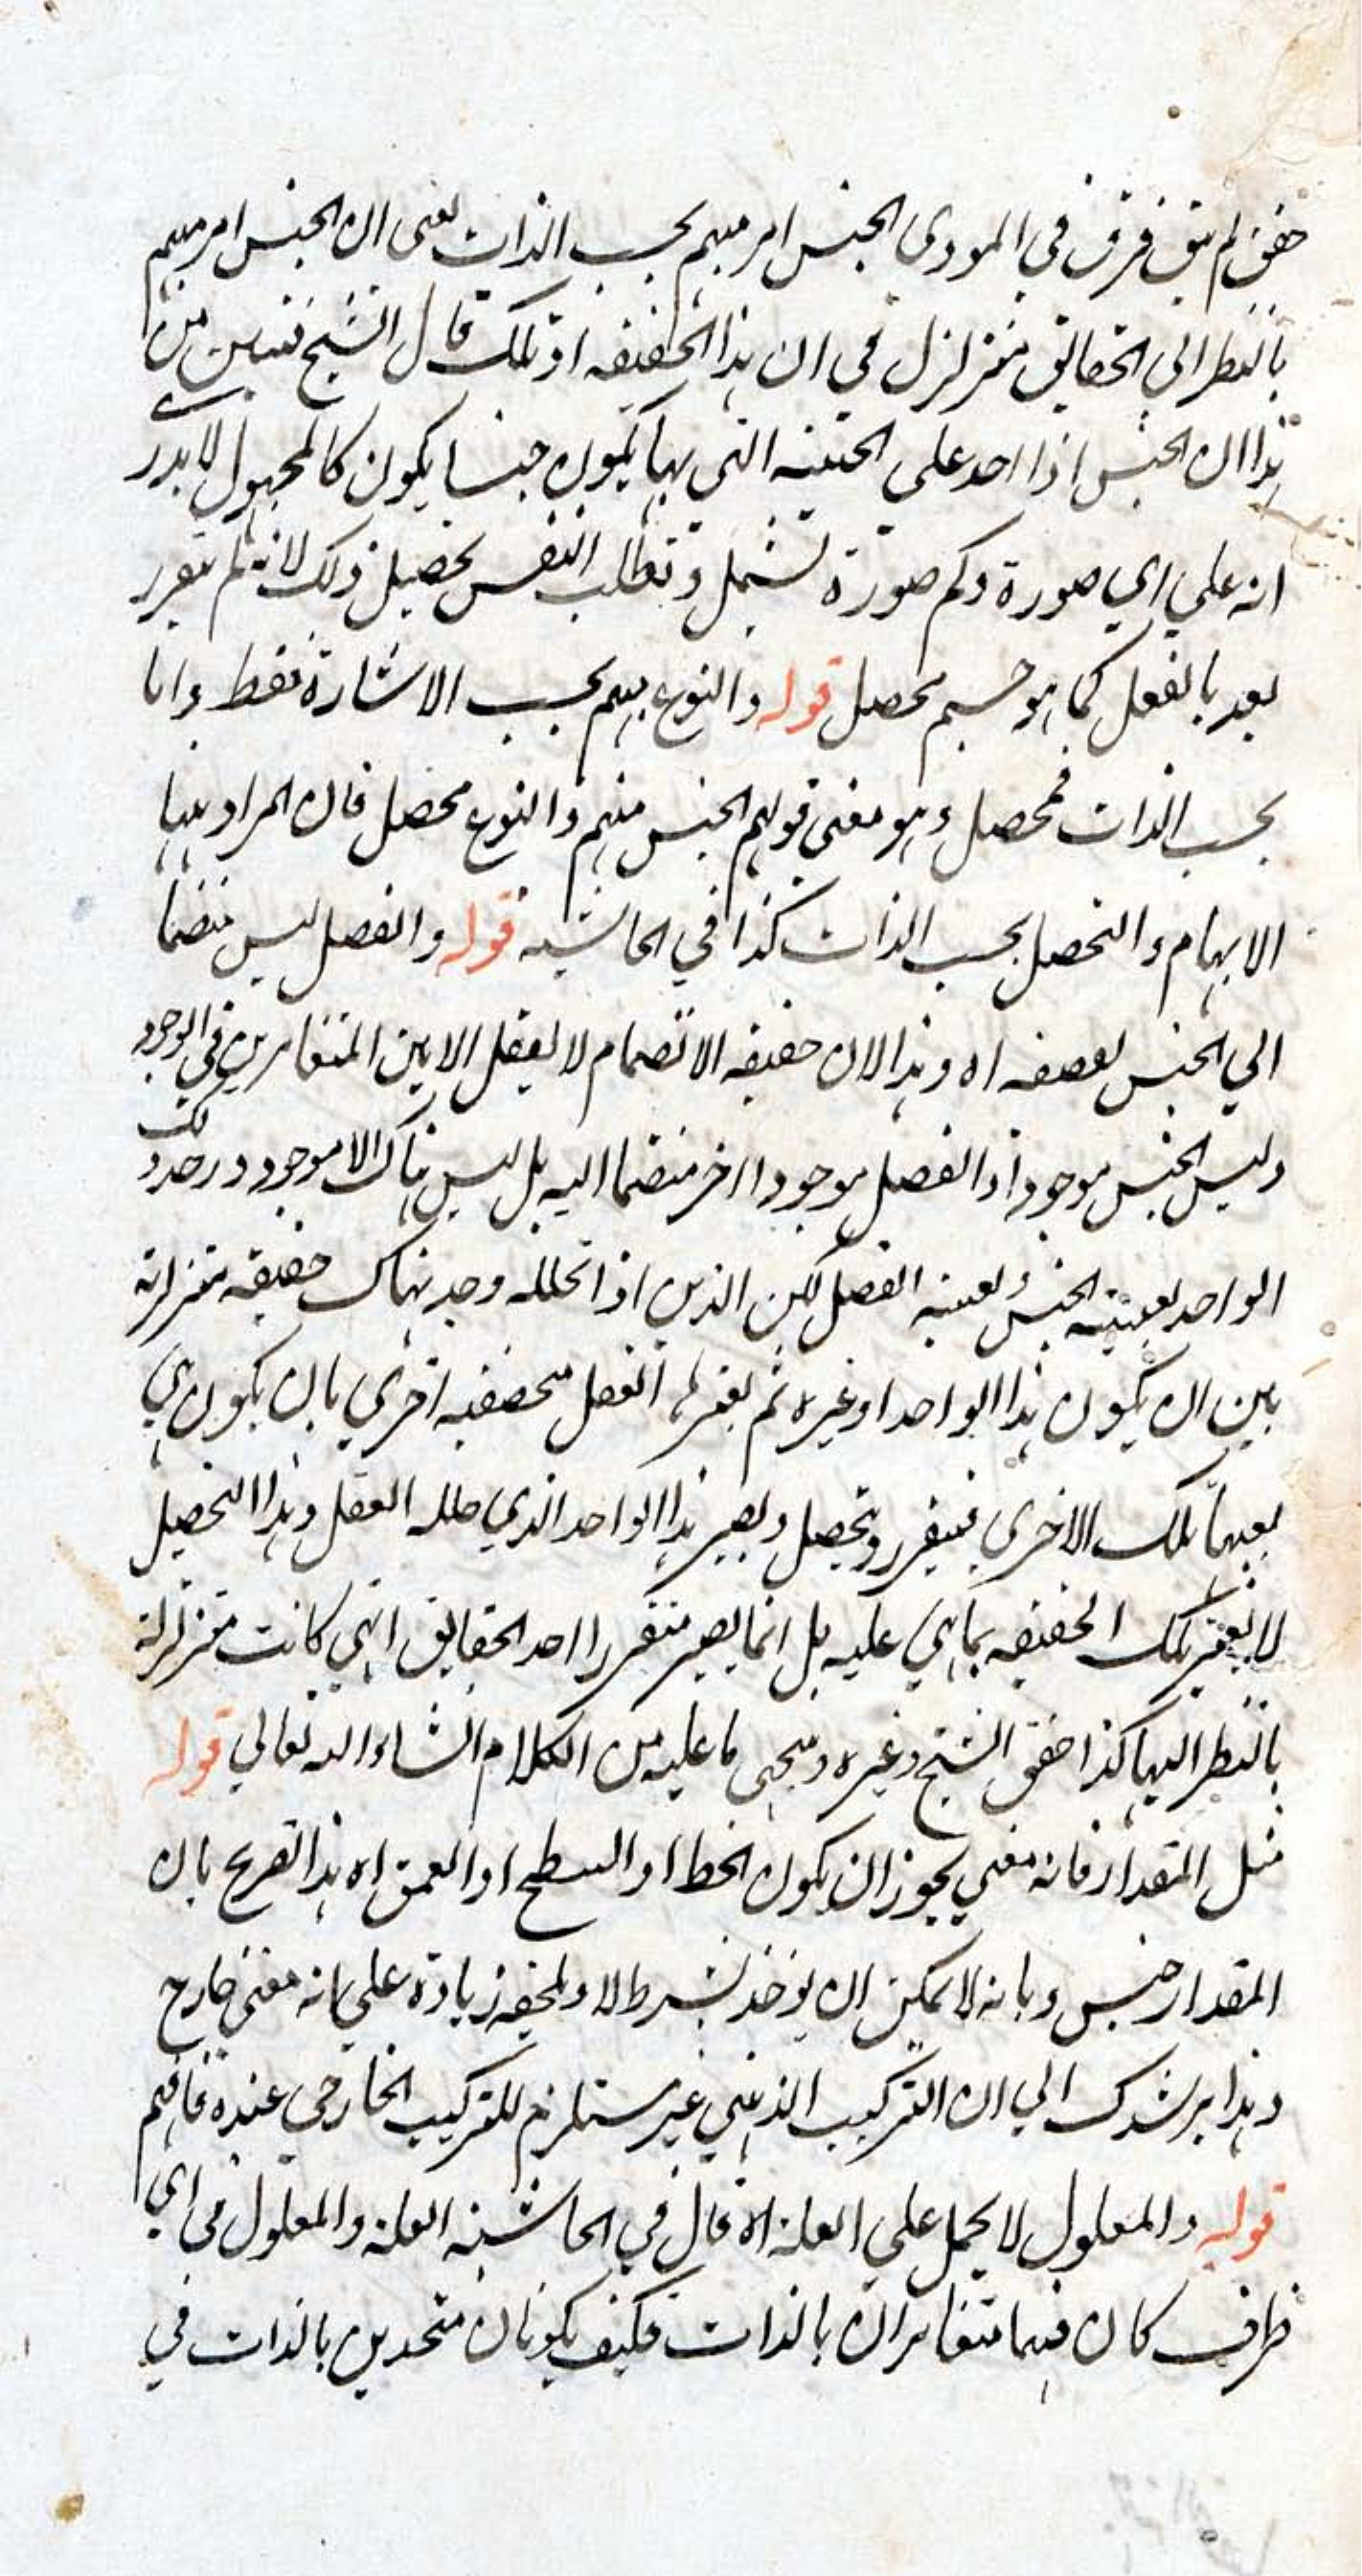 حقق لم يبق فرق في المودى الجنس امر مبهم بحسب الذات يعنى ان الجنس امر مبهم
بالنظر الى الحقائق متزلزل في ان هذا الحقيقه او تلك قال الشيخ فتبين من
هذا ان الجنس اذا اخذ على الحيثيه التي بها يكون جنسا يكون كالمجهول لا يدرى
انه على اي صورة وكم صورة تشتمل وتطلب النفس تحصيل ذلك لانه لم يتقرر
بعد بالفعل كما هو جسم محصل قوله والنوع مبهم بحسب الاشارة فقط واما
بحسب الذات فمحصل وهو معنى قولهم الجنس مبهم والنوع محصل فان المراد بهما
الابهام والتحصل بحسب الذات كذا في الحاشيه قوله والفصل ليس منضما
الي الجنس اه وهذا لان حقيقه الانضمام لا يعقل الا بين المتغايرين في الوجود
وليس الجنس موجودا والفصل موجودا اخر منضما اليه بل ليس هناك الا موجود واحد وذلك
الواحد بعينه الجنس وبعينه الفصل لكن الذهن اذا حلله وجد هناك حقيقه متزلزلة
بين ان يكون هذا الواحد او غيره ثم الفصل حقيقه اخري بان يكون هي
بعينها تلك الاخرى فيتقرر ويحصل ويصير هذا الواحد الذي حلله العقل وهذا التحصيل
لا يغير تلك الحقيقه بما هي عليه بل انما يصير متقررا احد الحقايق التي كانت متزلزلة
بالنظر اليها كذا حقق الشيخ وغيره وسيجى ما عليه من الكلام انشاء الله تعالي قوله
مثل المقدار فانه معنى يجوز ان يكون الخط او السطح او العمق اه هذا تصريح بان
المقدار جنس وبانه لا يمكن ان يوخذ بشرط لا ويلحقه زيادة على انه معنى خارج
وهذا يرشدك الي ان التركيب الذهني غير مستلزم للتركيب الخارجى عنده فافهم
قوله والمعلول لا يحمل على العلة اه قال في الحاشية العلة والمعلول في اي
ظرف كان فهما متغايران بالذات فكيف يكونان متحدين بالذات في